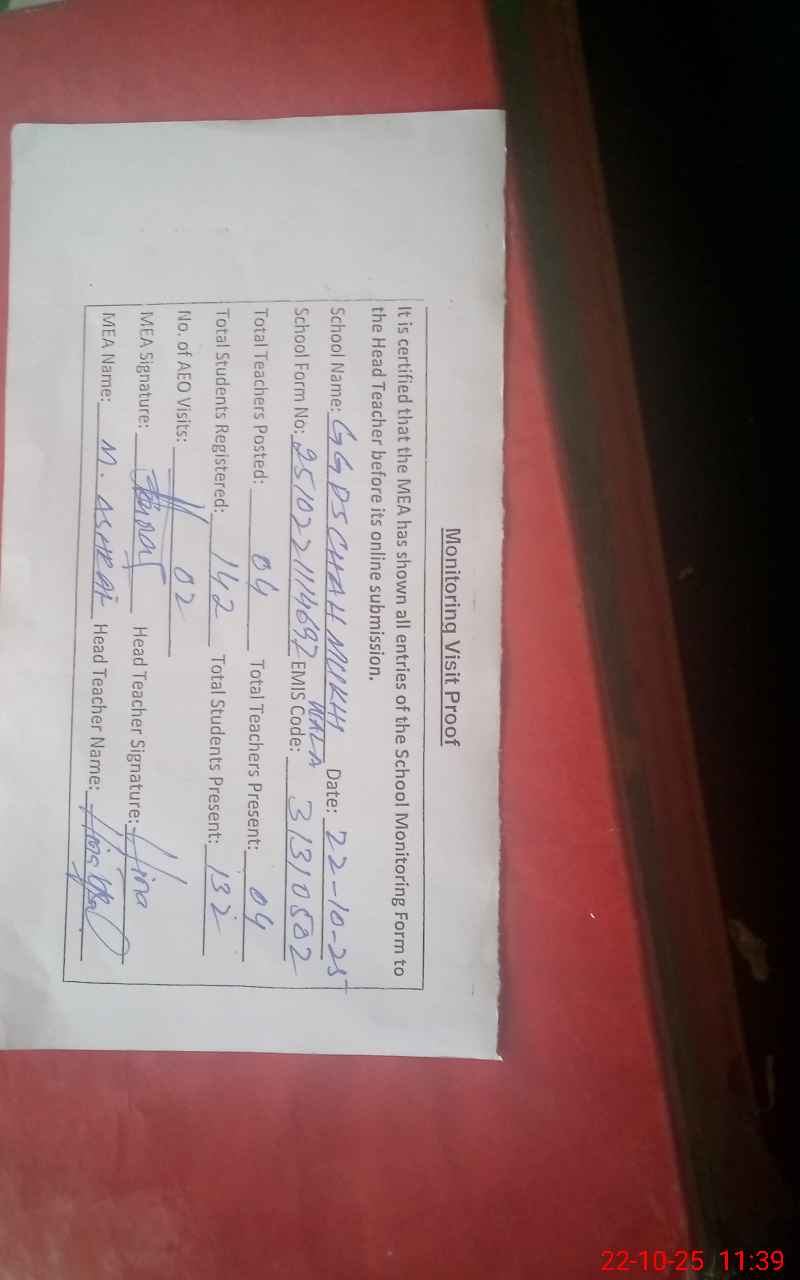 Monitoring Visit Proof
It is certified that the MEA has shown all entries of the School Monitoring Form to
the Head Teacher before its online submission.
School Name: GGPS CHAH MUKHI WALA Date: 22-10-25
School Form No: 2510221114692 EMIS Code: 31310502
Total Teachers Posted: 04 Total Teachers Present: 04
Total Students Registered: 142 Total Students Present: 132
No. of AEO Visits: 02
MEA Signature: Head Teacher Signature: Hina
MEA Name: M. ASHRAF Head Teacher Name: Hina
22-10-25 11:39